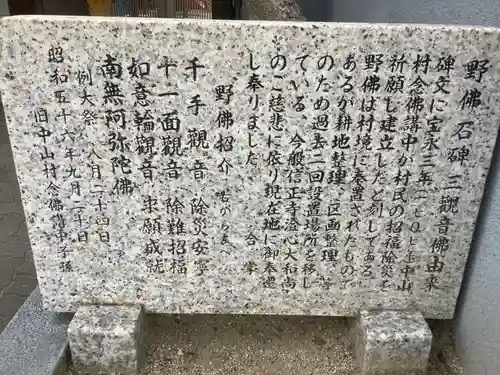 野佛石碑三觀音佛由来
碑文に宝永三年(一七〇七年)中山
村念佛講中が村民の招福除災を
祈願し建立したと刻してある
野佛は村境に奉置されたもので
あるが耕地整理、区画整理、等
のため過去二回設置場所を移し
ている 今般信正寺澄心大和尚
のご慈悲に依り現在地に御奉遷
し奉りました 合掌
野佛招介 右から
千手觀音 除災安寧
十一面觀音 除難招福
如意輪觀音 求願成就
南無阿弥陀佛
例大祭 八月二十四日
昭和五十六年九月二十日
旧中山村念佛講中子孫